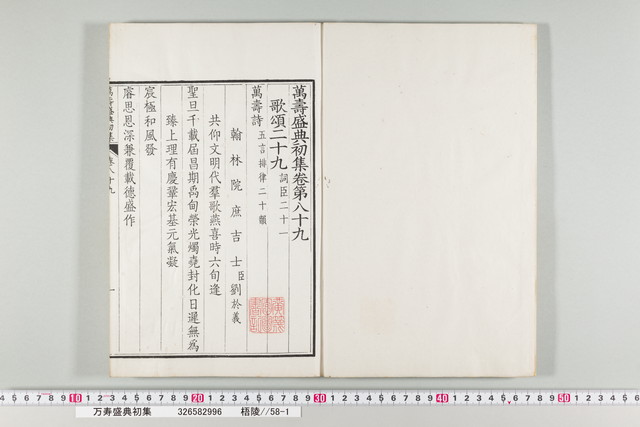 萬壽盛典初集卷第八十九
歌頌二十九 詞臣二十一
萬壽詩 五言排律二十韻
翰林院庶吉士臣劉於義
共仰文明代羣歌燕喜時六旬逢
聖旦千載屆昌期禹甸榮光燭堯封化日遲無為
臻上理有慶鞏宏基元氣凝
宸極和風發
睿思恩深兼覆載德盛作
萬壽盛典初集 卷八十九 一
万寿盛典初集 326582996 梧陵//58-1
10 20 30 40 50